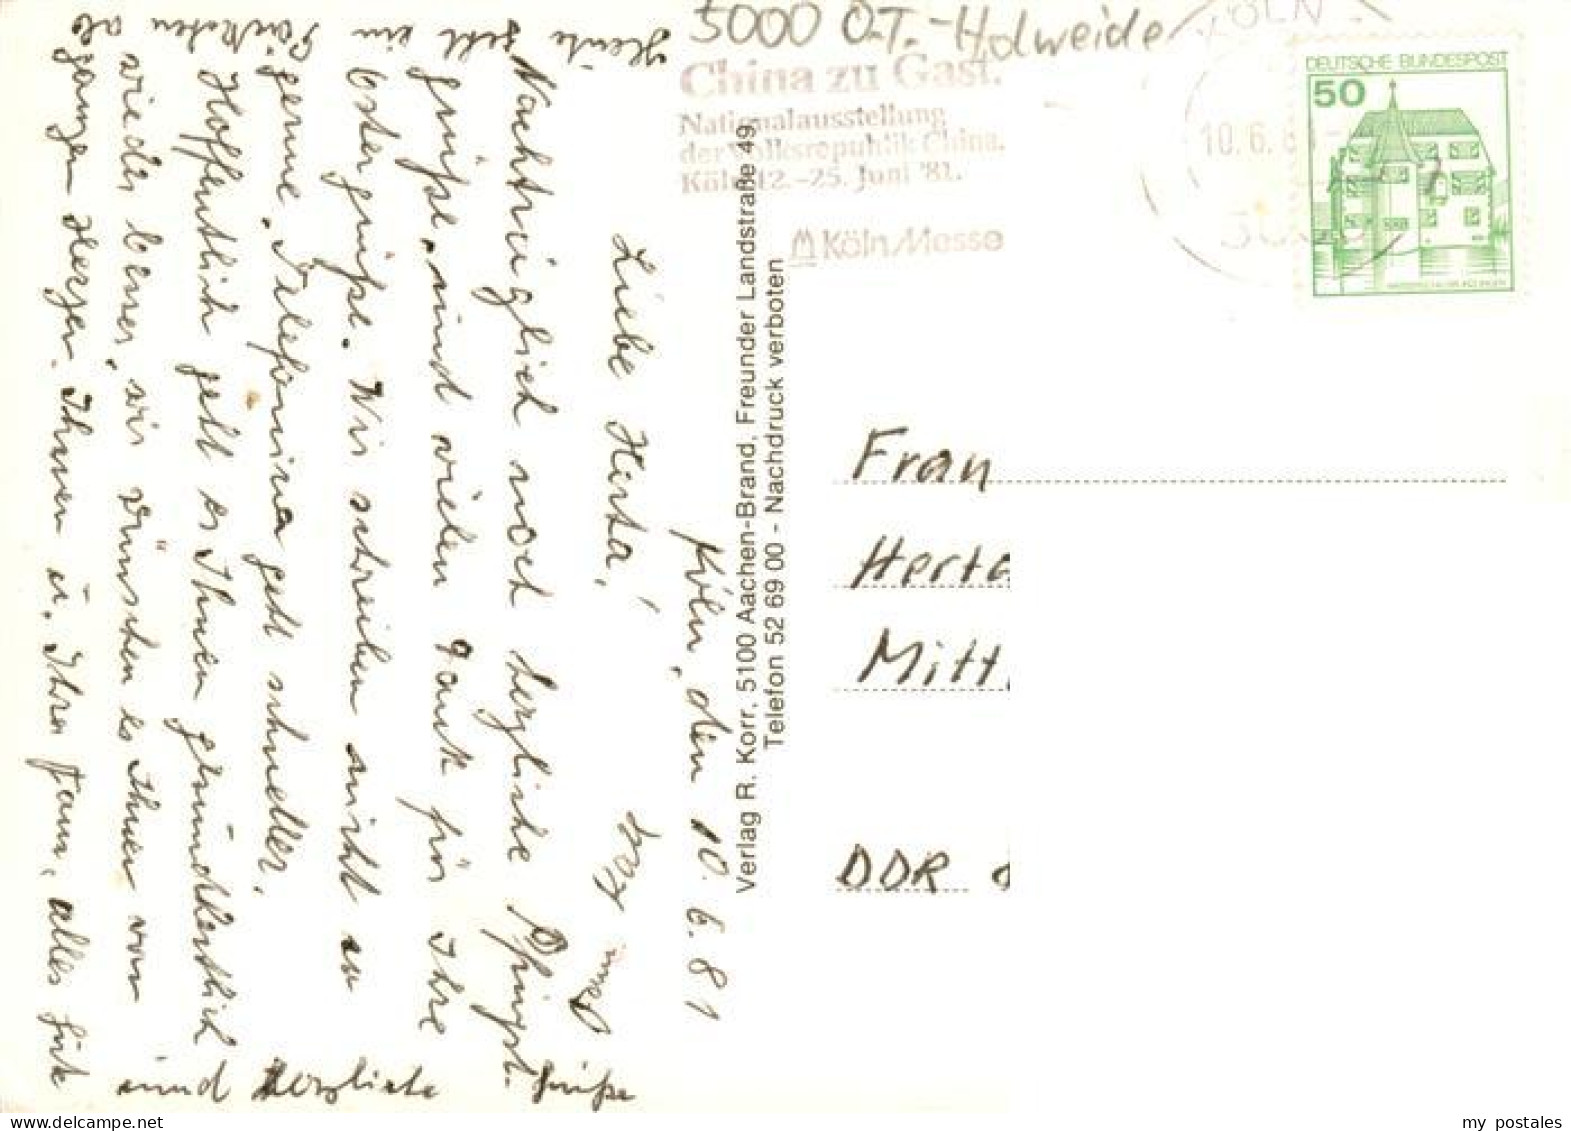 5000 O.T.-Holweide
China zu Gast.
Nationalausstellung
der Volksrepublik China.
Köln 12.-25. Juni '81.
KölnMesse
KÖLN
10.6.8
DEUTSCHE BUNDESPOST
50
Köln, den 10.6.81
Liebe Herta!
Nachträglich noch herzliche Pfingst-
grüße, und vielen Dank für Ihre
Ostergrüße. Wir schreiben nicht so
gerne, Telefonieren geht schneller.
Hoffentlich geht es Ihnen gesundheitlich
wieder besser, wir wünschen es Ihnen von
ganzen Herzen. Ihnen u. Ihrer Fam. alles
und herzliche Grüße
Heute
Verlag R. Korr, 5100 Aachen-Brand, Freunder Landstraße 49
Telefon 52 69 00 - Nachdruck verboten
Frau
Herta
Mitt
DDR
my postales